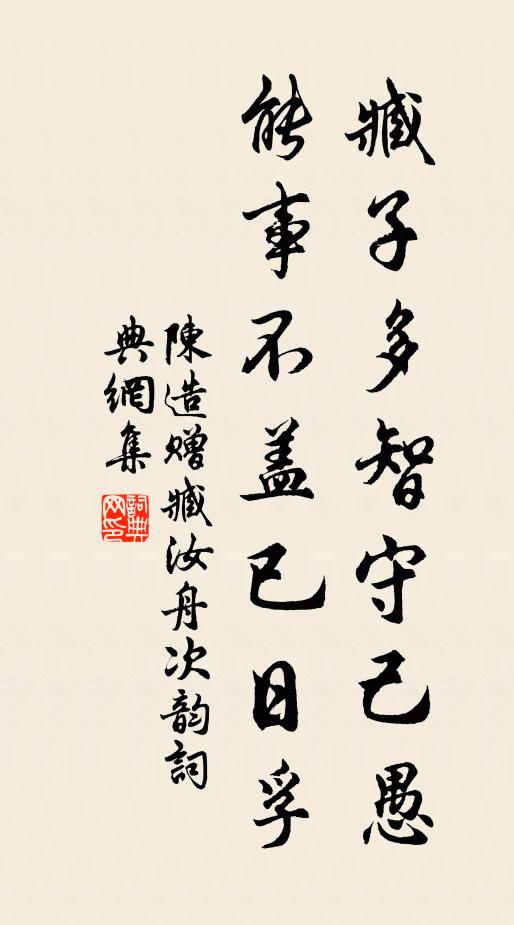 臧子多智守己愚
能事不盖已日孚
陳造赠臧汝舟次韵詞
典網集
詞典网印